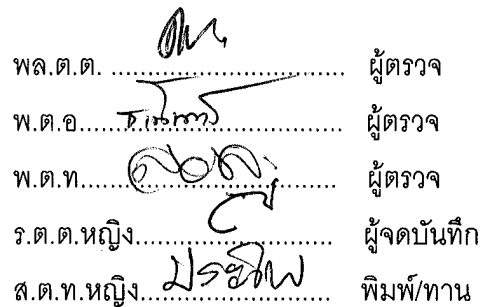 พล.ต.ต. .................................... ผู้ตรวจ
พ.ต.อ.................................... ผู้ตรวจ
พ.ต.ท.................................... ผู้ตรวจ
ร.ต.ต.หญิง.............................. ผู้จดบันทึก
ส.ต.ท.หญิง.............................. พิมพ์/ทาน